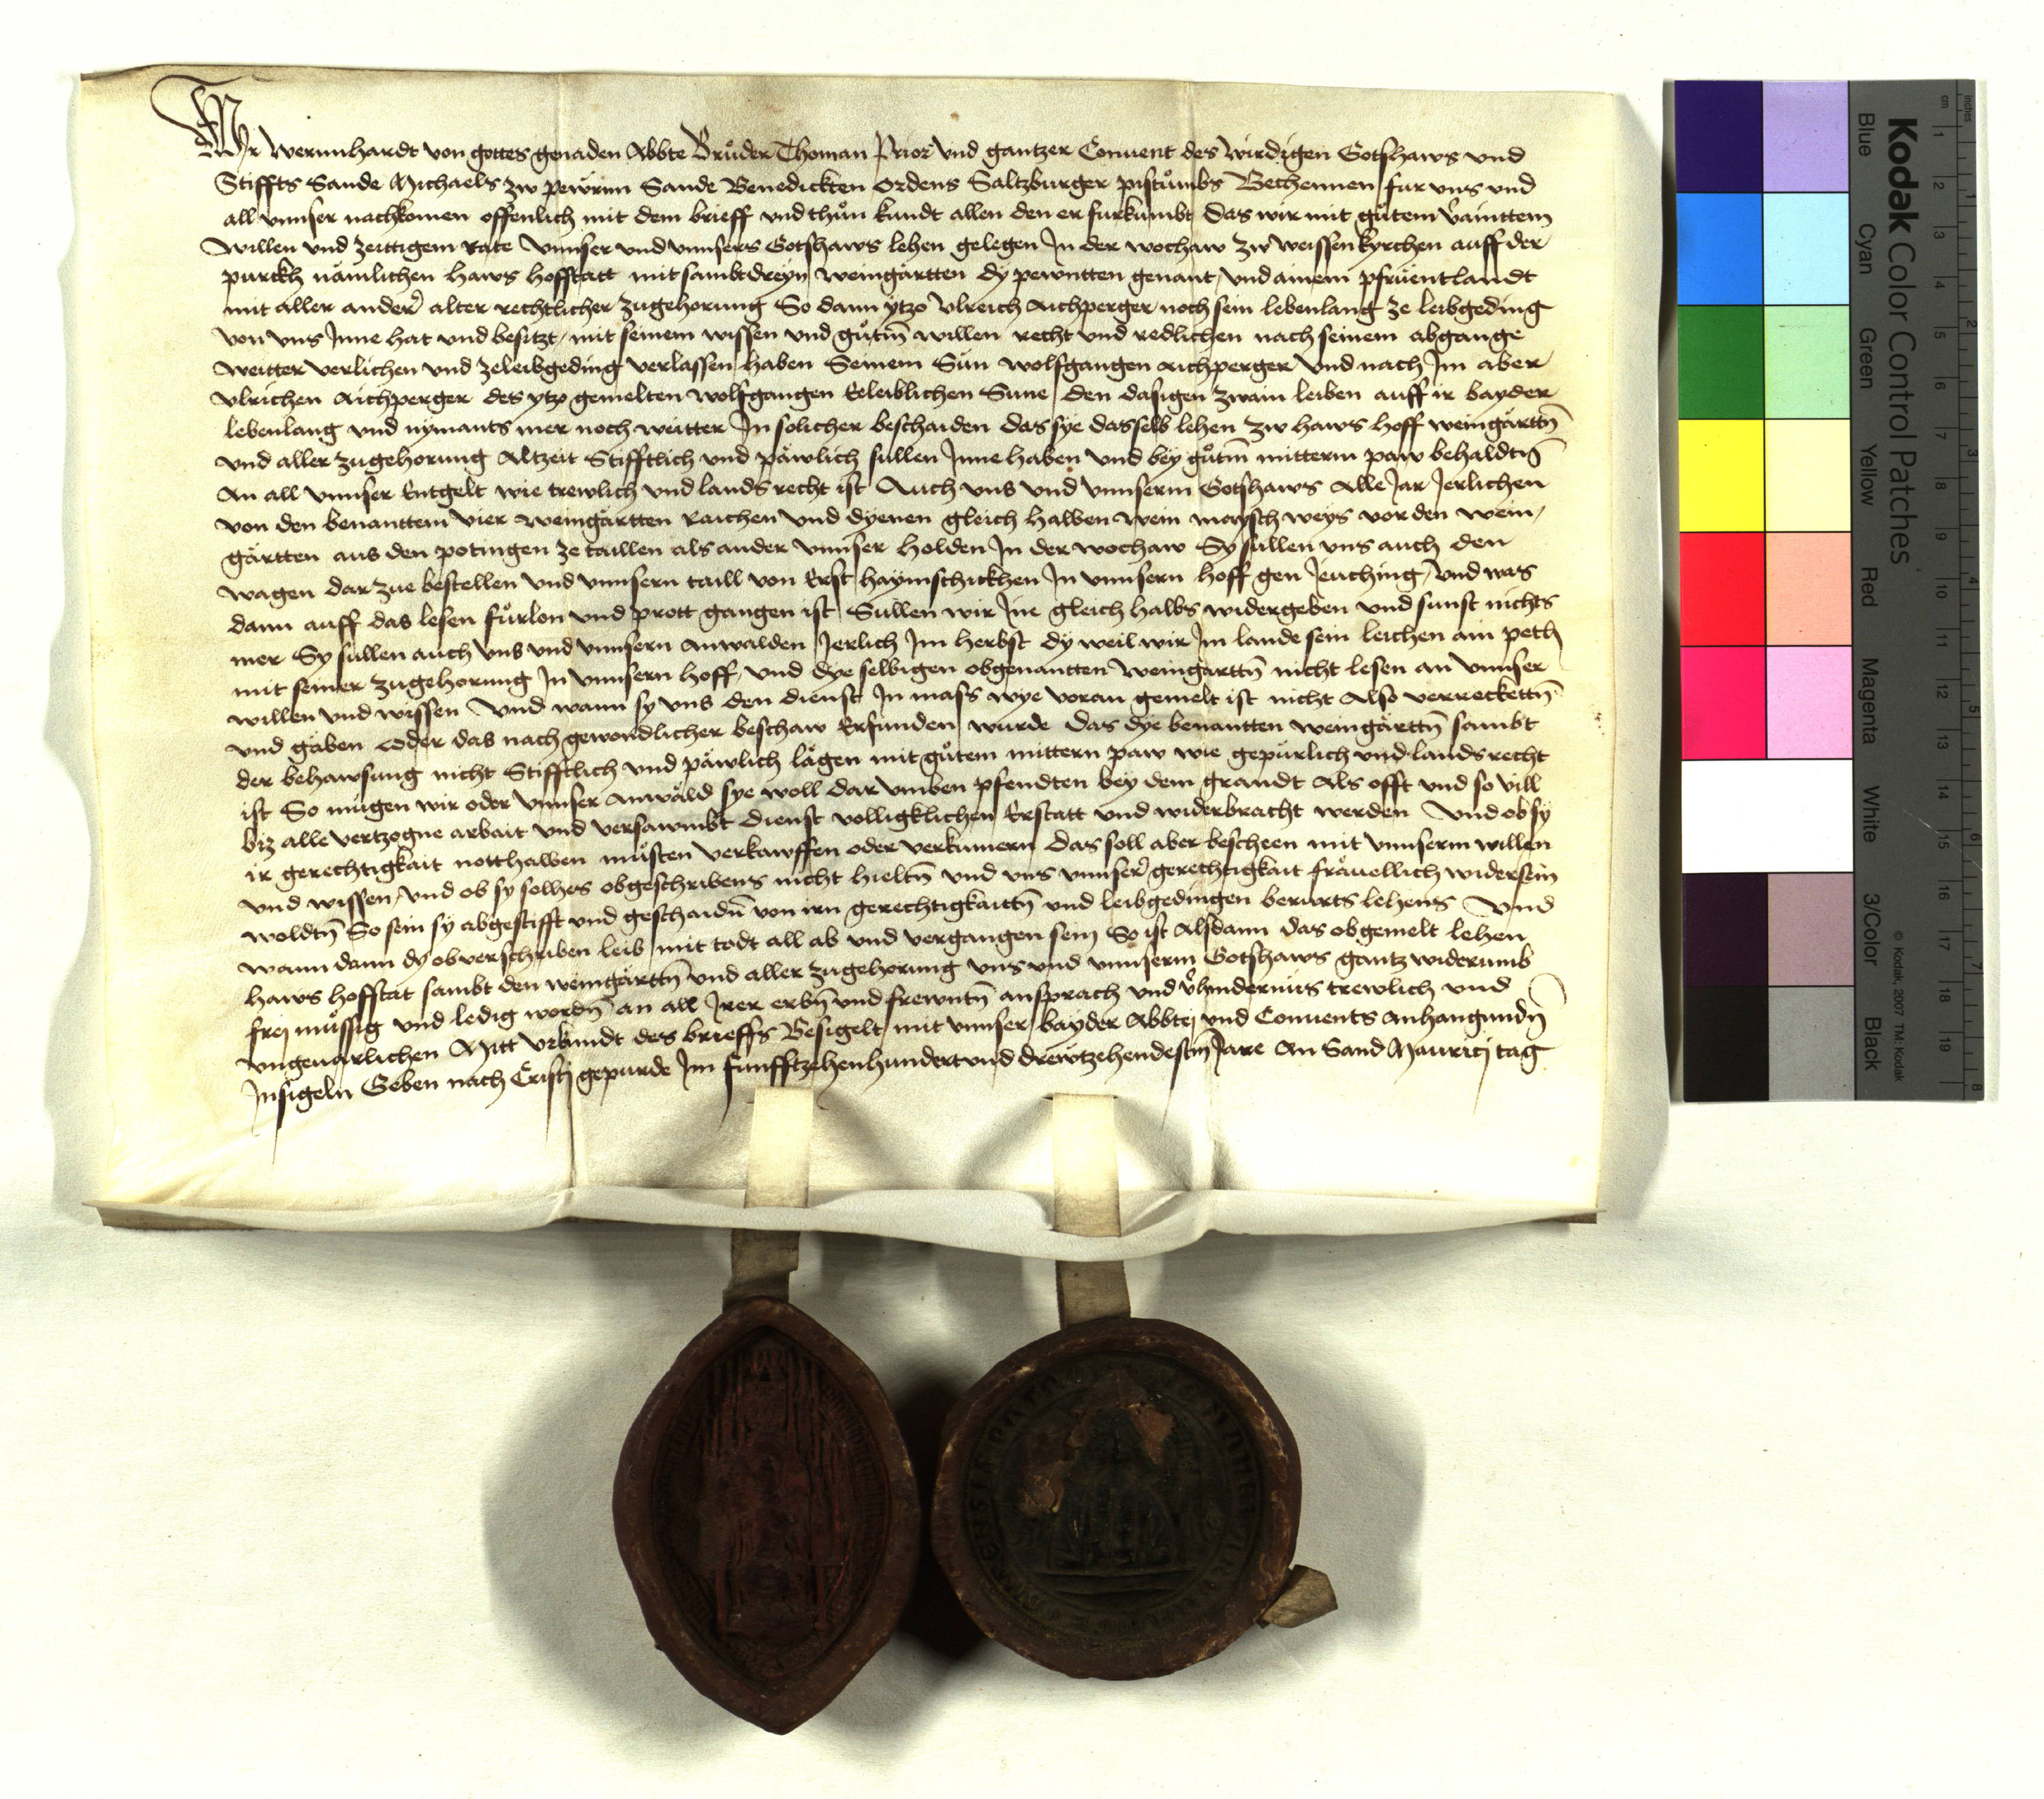 Wir Wernnhardt von gottes genaden Abbte Brůder Thoman Prior vnd gantzer Conuent des wirdigen Gotshaws vnd
Stiffts Sande Michaels zw pewrnn Sande Benedickten ordens Saltzburger pistůmbs Bechennen fur vns vnd
all vnnser nachkomen offenlich mit dem brieff vnd thůn kundt allen den er furkumbt Das wir mit gůtem v̄ainttem
willen vnd zeittigem Rate vnnser vnd vnnsers Gotshaws lehen gelegen Jn der wochaw zw weissenkyrchen auff der
purckh nämlichen haws hofstatt mit sambt dreyn weingärtten dy pewntten genant vnd ainem pfrüentlandt
mit aller anderr̄ alter rechtlicher zugehorung So dann ytzo vlreich Aichperger noch sein lebenlang ze leibgeding
von vns Jnne hat vnd besitzt mit seinem wissen vnd gůtm̄ willen recht vnd redlichen nach seinem abgange
weitter verlichen vnd zeleibgeding verlassen haben Seinem Sün wolfgangen Aichperger vnd nach Jm aber
vlrichen Aichperger des ytzo gemelten wolfgangen Eeleiblichen Sune den dasigen zwain leiben auff ir bayder
lebenlang vnd nymants mer noch weitter Jn solicher beschaiden das sye dasselb lehen zw haws hoff weingärttn̄
vnd aller zugehorung Altzeit Stifftlich vnd päwlich sullen Jnne haben vnd bey gůtm̄ mitterm paw behaldtn̄
An all vnnser Entgelt wie trewlich vnd lands recht ist Auch vns vnd vnnserm Gotshaws Alle Jar Jerlichen
von den benanttem vier weingärtten Raichen vnd dyenen gleich halben wein maysch weys vor den wein
gärtten aus den potingen ze taillen als ander vnnser holden Jn der wochaw Sy sullen vns auch den
wagen dar zue bestellen vnd vnnsern taill von Erst haymschickhen Jn vnnsern hoff gen Jeuching vnd was
dann auff das lesen fůrlon vnd prott gangen ist Sullen wir Jne gleich halbs widergeben vnd sunst nichts
mer Sy sullen auch vns vnd vnnsern Anwalden Jerlich Jm herbst dy weil wir Jm lande sein leichen ain peth
mit seiner zugehorung Jn vnnsern hoff vnd dye selbigen obgenantten weingarttn̄ nicht lesen an vnnser
willen vnd wissen Vnd wann sy vns den dienst Jn mass wye voran gemelt ist nicht Also verrecketn̄
vnd gäben Oder das nach gewondlicher beschaw Erfunden wurde Das dye benantten weingärttn̄ sambt
der behawsung nicht Stifftlich vnd päwlich lägen mit gůtem mittern paw wie gepürlich vnd lands recht
ist So mügen wir oder vnnser Anwäld sye woll dar vmben pfendten bey dem grandt Als offt vnd so vill
biz alle vertzogne arbait vnd versawmbt dienst volligklichen Erstatt vnd widerbracht werden Vnd ob sy
ir gerechtigkait notthalben můsten verkawffen oder verkumern Das soll aber bescheen mit vnnserm willen
vnd wissen vnd ob sy solhes obgeschribens nicht hieltn̄ vnd vns vnnserr̄ gerechtigkait fräuellich widersein
woldtn̄ So sein sy abgestifft vnd geschaidn̄ von irn gerechtigkaittn̄ vnd leibgedingen berurts lehens Vnd
wann dann dy obverschriben leib mit todt all ab vnd vergangen sein So ist Alsdann das obgemelt lehen
haws hofstat sambt den weingärttn̄ vnd aller zugehorung vns vnd vnnserm Gotshaws gantz widerumb
frej můssig vnd ledig wordn̄ an all Jrer erbn̄ vnd frewntn̄ ansprach vnd v̄hindernüs trewlich vnd
vngeuarlichen Mitt vrkundt des brieffs Besigelt mit vnnser bayder Abbtej vnd Conuents anhangundn̄
Jnsigeln Geben nach Cristj gepurde Jm funfftzehenhundert vnd drewtzehendestm̄ Jare An Sand Mauricj tag
Kodak Color Control Patches
Blue Cyan Green Yellow Red Magenta White 3/Color Black
© Kodak, 2007 TM: Kodak
cm 1 2 3 4 5 6 7 8 9 10 11 12 13 14 15 16 17 18 19
inches 1 2 3 4 5 6 7 8